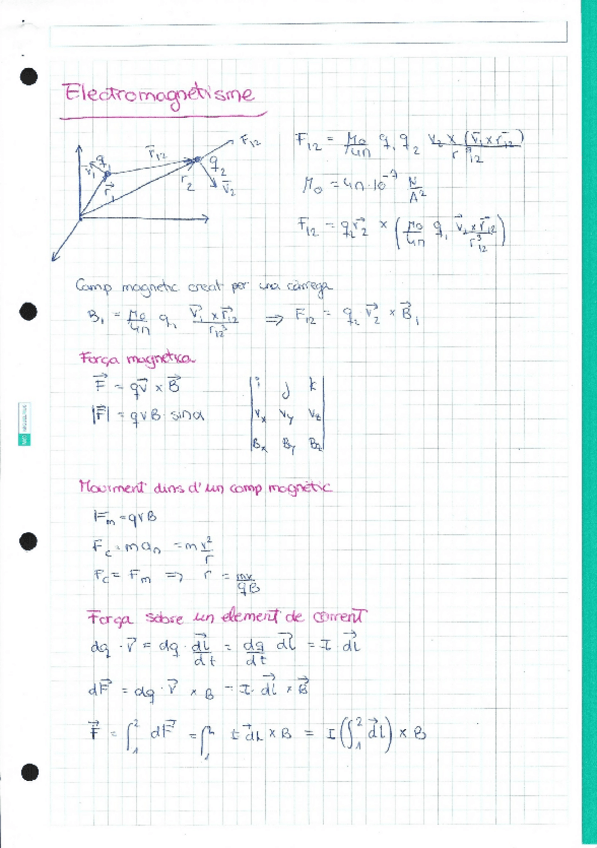 Electromagnetisme
q₁ v⃗₁ r⃗₁ r⃗₁₂ r₂ q₂ v⃗₂ F₁₂
F₁₂ = μ₀/4π q₁ q₂ v₂ × (v⃗₁ × r⃗₁₂) / r³₁₂
μ₀ = 4π·10⁻⁷ N/A²
F₁₂ = q₂ v⃗₂ × (μ₀/4π q₁ v⃗₂ × r⃗₁₂ / r³₁₂)
Camp magnetic creat per una càrrega
B₁ = μ₀/4π q₁ v⃗₁ × r⃗₁₂ / r₁₂³ ⇒ F₁₂ = q₂ v⃗₂ × B⃗₁
Força magnetica
F⃗ = qv⃗ × B⃗
|F⃗| = qvB · sinα
i j k
vₓ v_y v_z
Bₓ B_y B_z
Moviment dins d'un camp magnètic
Fₘ = qvB
F_c = m aₙ = m v²/r
F_c = Fₘ ⇒ r = mv/qB
Força sobre un element de corrent
dq · v⃗ = dq · dl⃗/dt = dq/dt dl⃗ = I dl⃗
dF⃗ = dq · v⃗ × B = I · dl⃗ × B⃗
F⃗ = ∫₁² dF⃗ = ∫₁² I dl⃗ × B = I (∫₁² dl⃗) × B